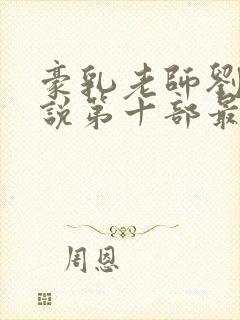 豪乳老師劉
說第十部最
周恩